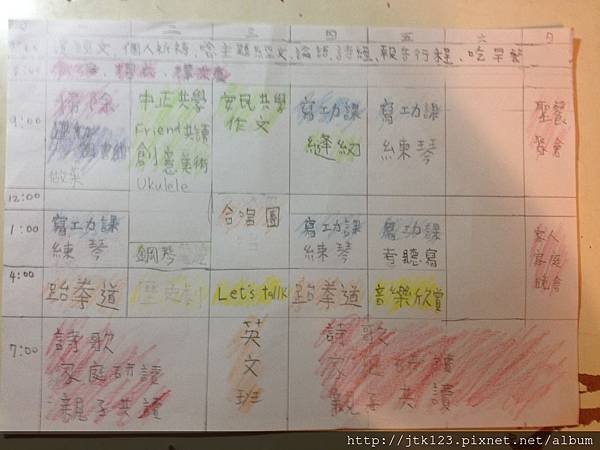 二 三 四 五 六 日
個人祈禱、唸主題經文、論語、詩經、報告行程、吃早餐
8:00
9:00
掃除
做菜
中正共學
Friend共讀
創意美術
Ukulele
安民共學
作文
寫功課
縫紉
寫功課
練琴
聖餐
聚會
12:00
合唱團
1:00
寫功課
練琴
鋼琴
寫功課
練琴
寫功課
考聽寫
家人
家庭
聚會
4:00
跆拳道
歷史
Let's talk
跆拳道
音樂欣賞
7:00
詩歌
家庭研讀
親子共讀
英
文
班
詩歌
家庭研讀
親子共讀
http://jtk123.pixnet.net/album